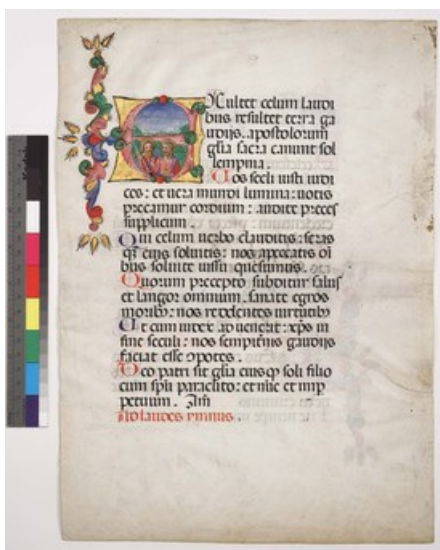 EXultet celum laudi
bus resultet terra ga
udijs. apostolorum
glia sacra canunt sol
lempnia.
Uos secli iusti iudi
ces: et uera mundi lumina: uotis
precamur cordium: audite preces
supplicum.
Qui celum uerbo clauditis: seras
qꝫ eius soluitis: nos apeccatis oĩ
bus soluite iussu quesumus.
Quorum precepto subditur salus
et langor omnium. sanate egros
moribꝰ: nos reddentes uirtutibꝰ
Ut cum iudex aduenerit: xp̃s in
fine seculi: nos sempitnis gaudijs
faciat esse ꝯpotes.
Deo patri sit glia eiusqꝫ soli filio
cum spũ paraclito: et nũc et imp
petuum. Am̃
Ad laudes ymnus.